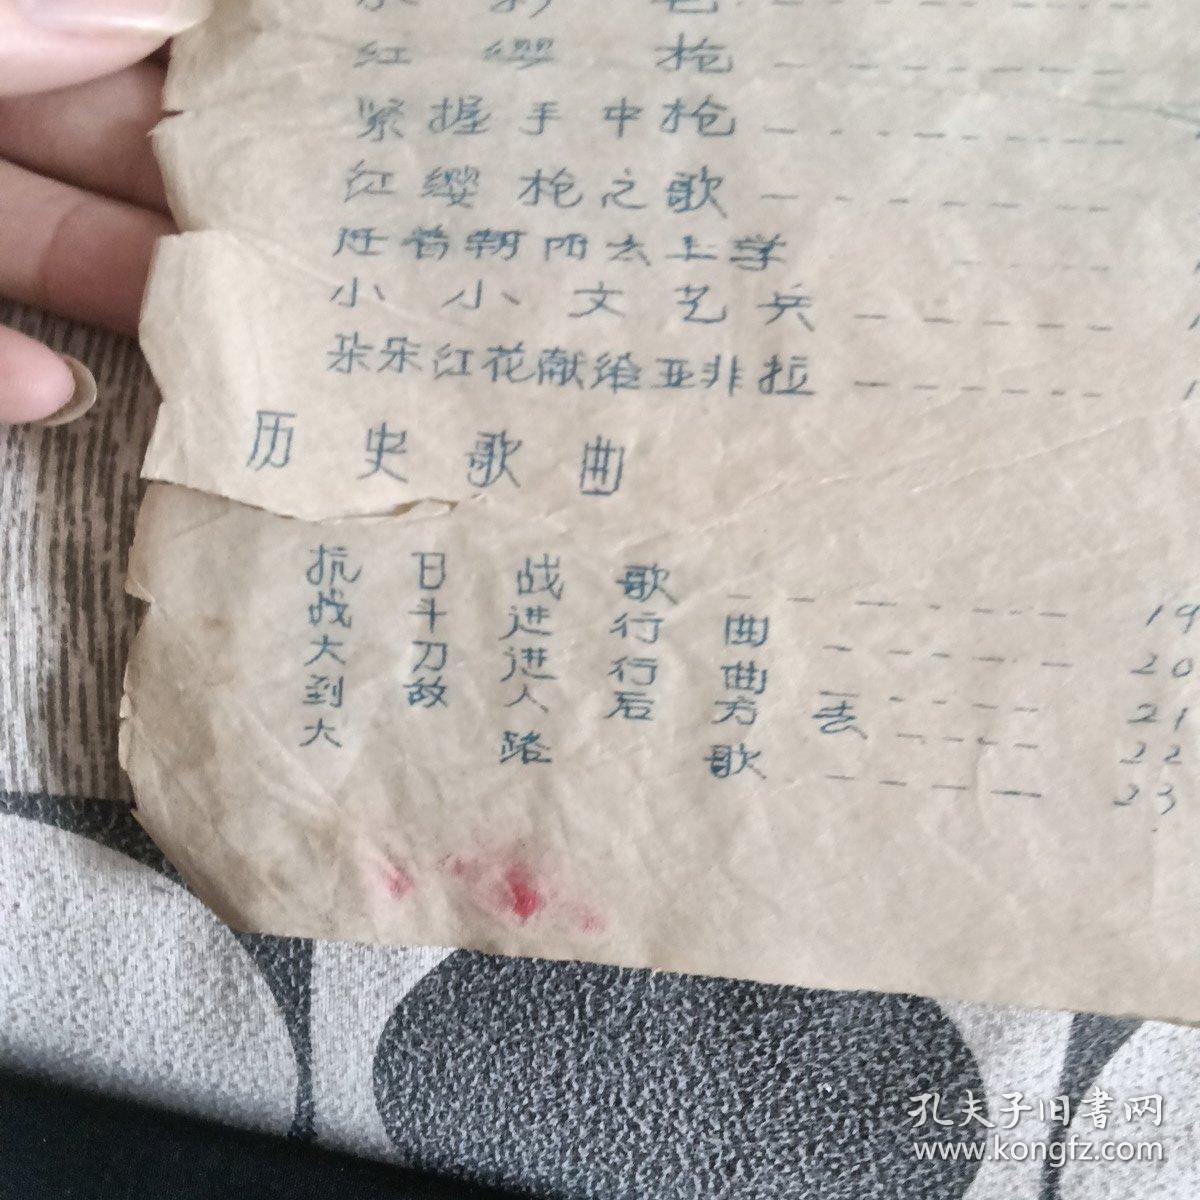 红缨枪 ------
紧握手中枪 ------
红缨枪之歌 ------
迎着朝阳去上学 ----
小小文艺兵 ------
朵朵红花献给亚非拉 ------
历史歌曲
抗日战歌 ------ 19
战斗进行曲 ------ 20
大刀进行曲 ------ 21
到敌人后方去 ----- 22
大路歌 ------ 23
孔夫子旧書网
www.kongfz.com